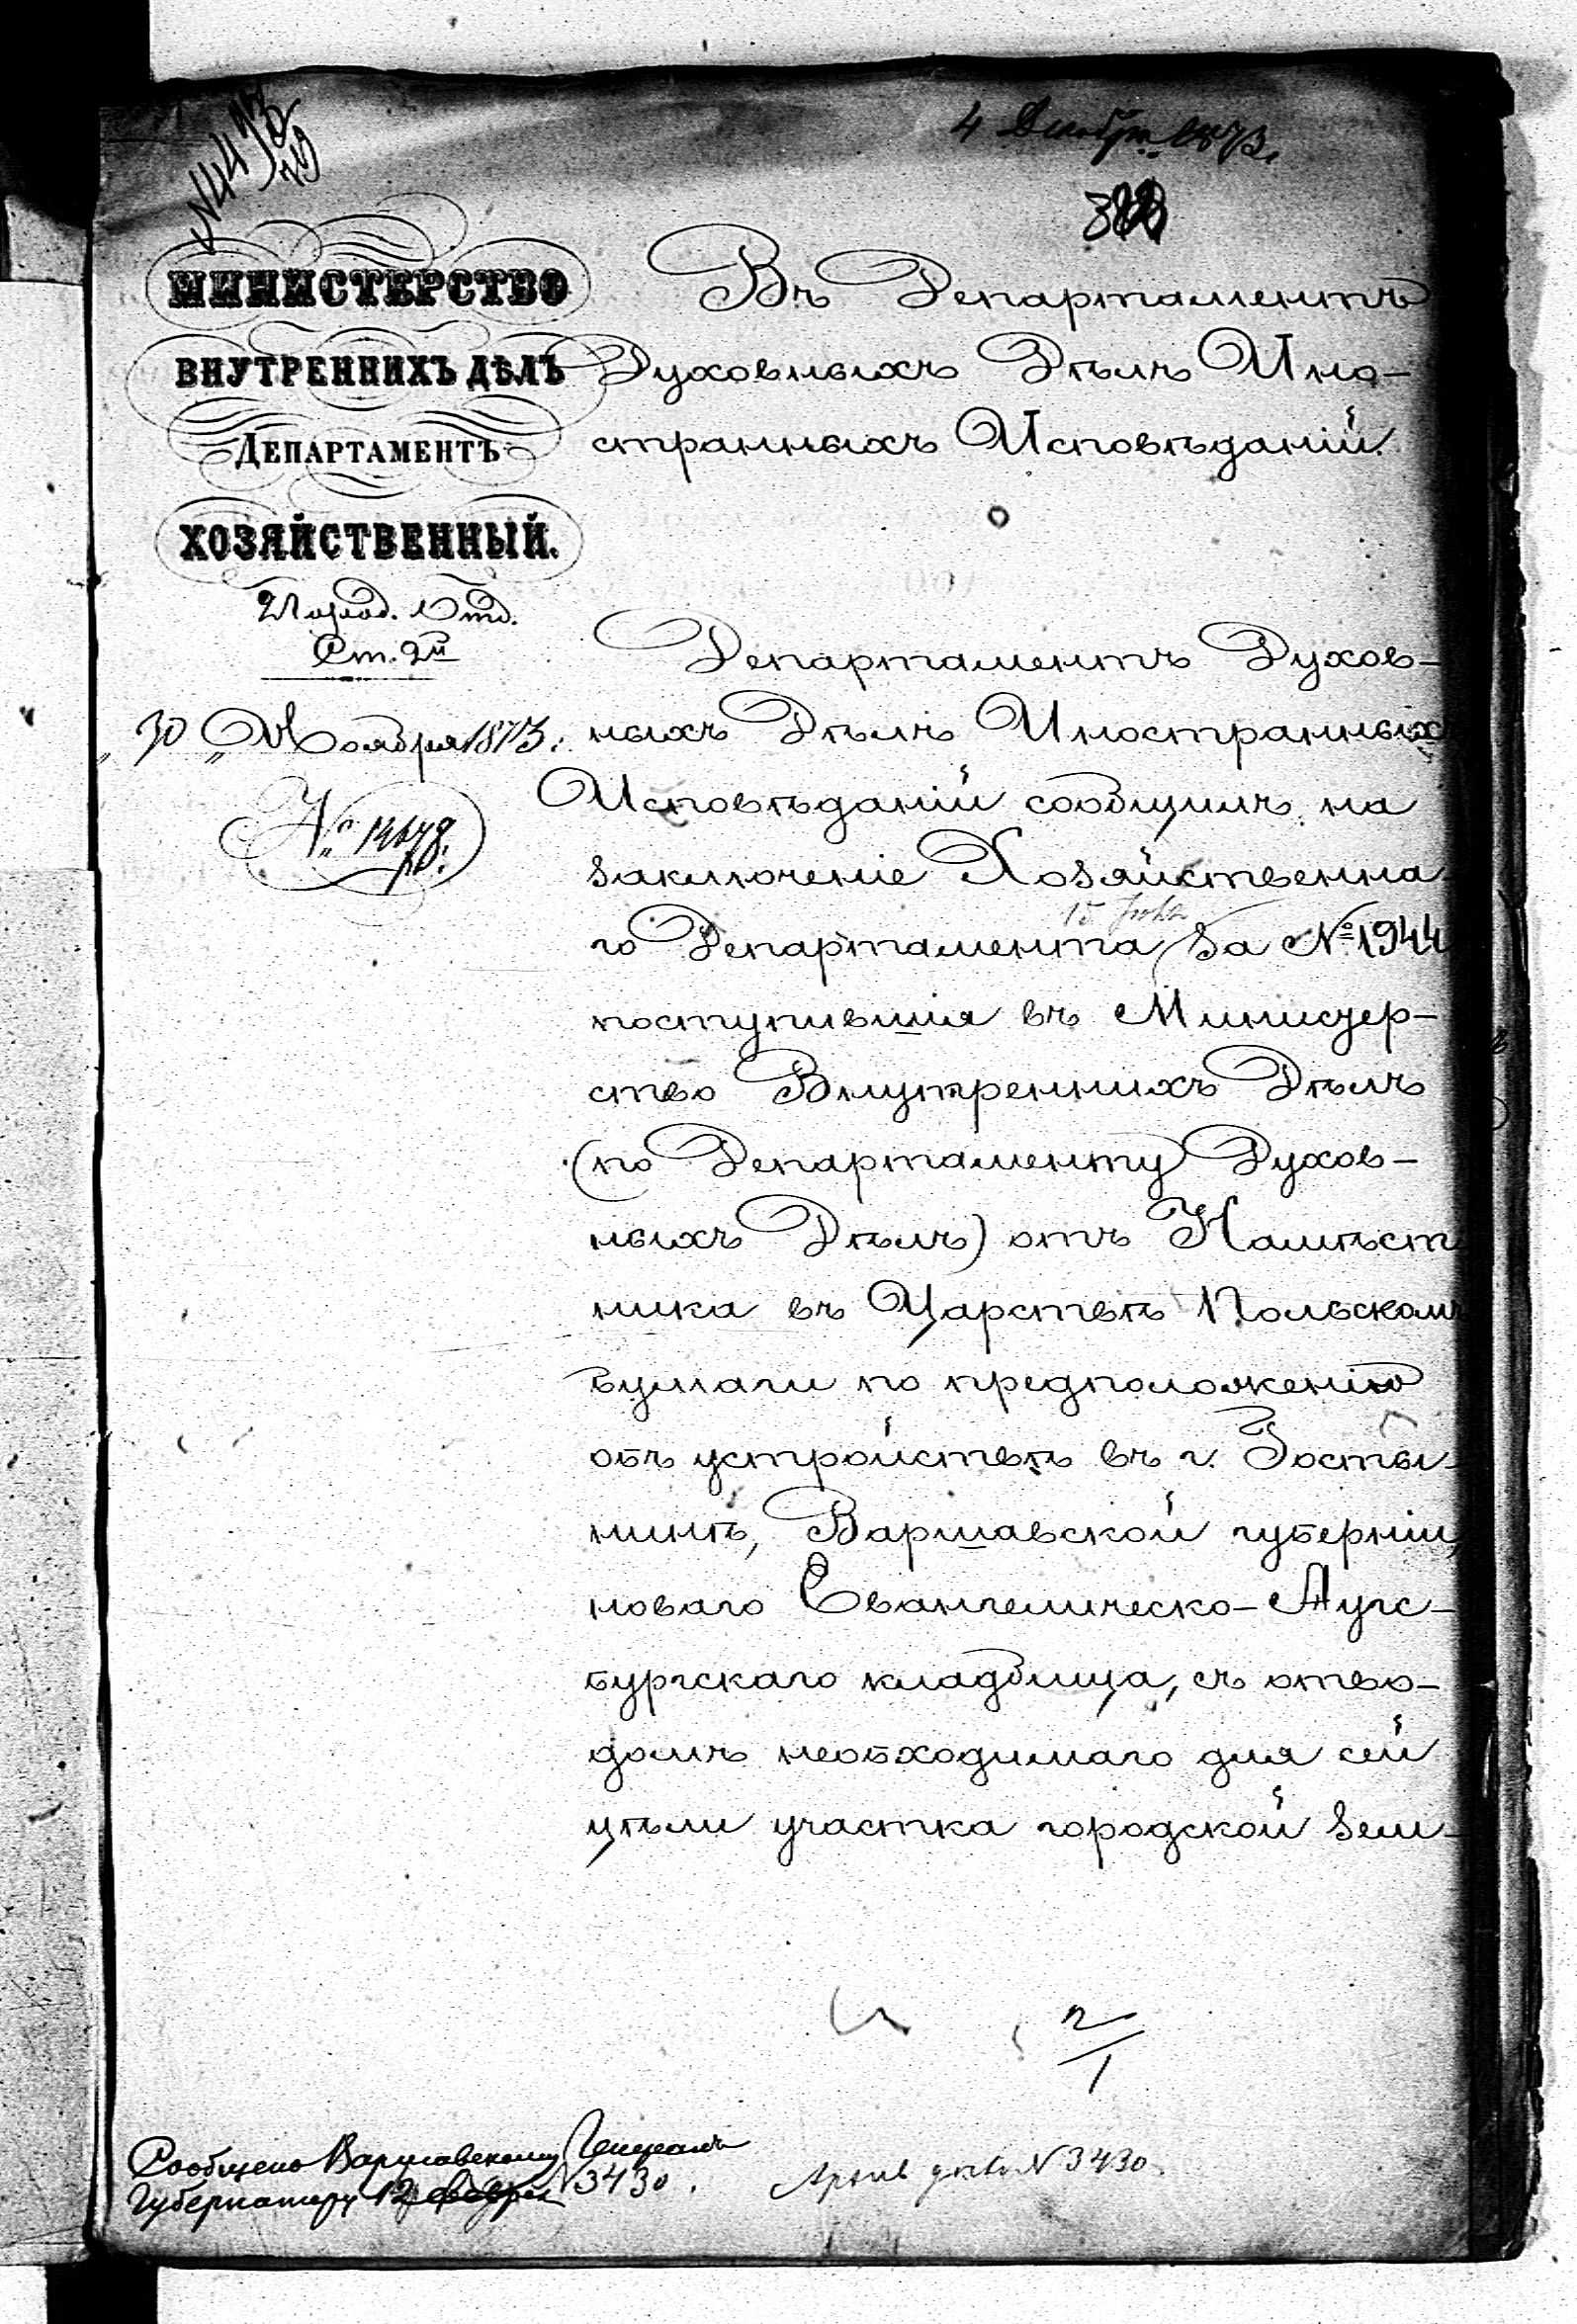 4 Декабря 1873.
МИНИСТЕРСТВО
ВНУТРЕННИХЪ ДѢЛЪ
ДЕПАРТАМЕНТЪ
ХОЗЯЙСТВЕННЫЙ.
Город. Отд.
Ст. 2й
„30„ Ноября 1873 г.
№
Въ Департаментъ
Духовныхъ Дѣлъ Ино-
странныхъ Исповѣданій.
Департаментъ Духов-
ныхъ Дѣлъ Иностранных
Исповѣданій сообщилъ на
заключеніе Хозяйственна
го Департамента за № 1944
поступившія въ Министер-
ство Внутреннихъ Дѣлъ
(по Департаменту Духов-
ныхъ Дѣлъ) отъ Намѣст
ника въ Царствѣ Польскомъ
бумаги по предположенію
объ устройствѣ въ г. Госты-
нинѣ, Варшавской губерніи,
новаго Евангелическо-Аугс-
бургскаго кладбища, съ отво-
домъ необходимаго для сей
цѣли участка городской зем-
2/1
Сообщено Варшавскому Генералъ
Губернатору 12 Февраля № 3430.
№ 3430.